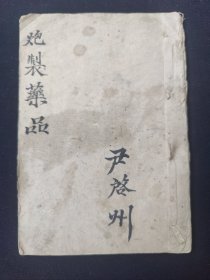 炮製藥品
尹啓州